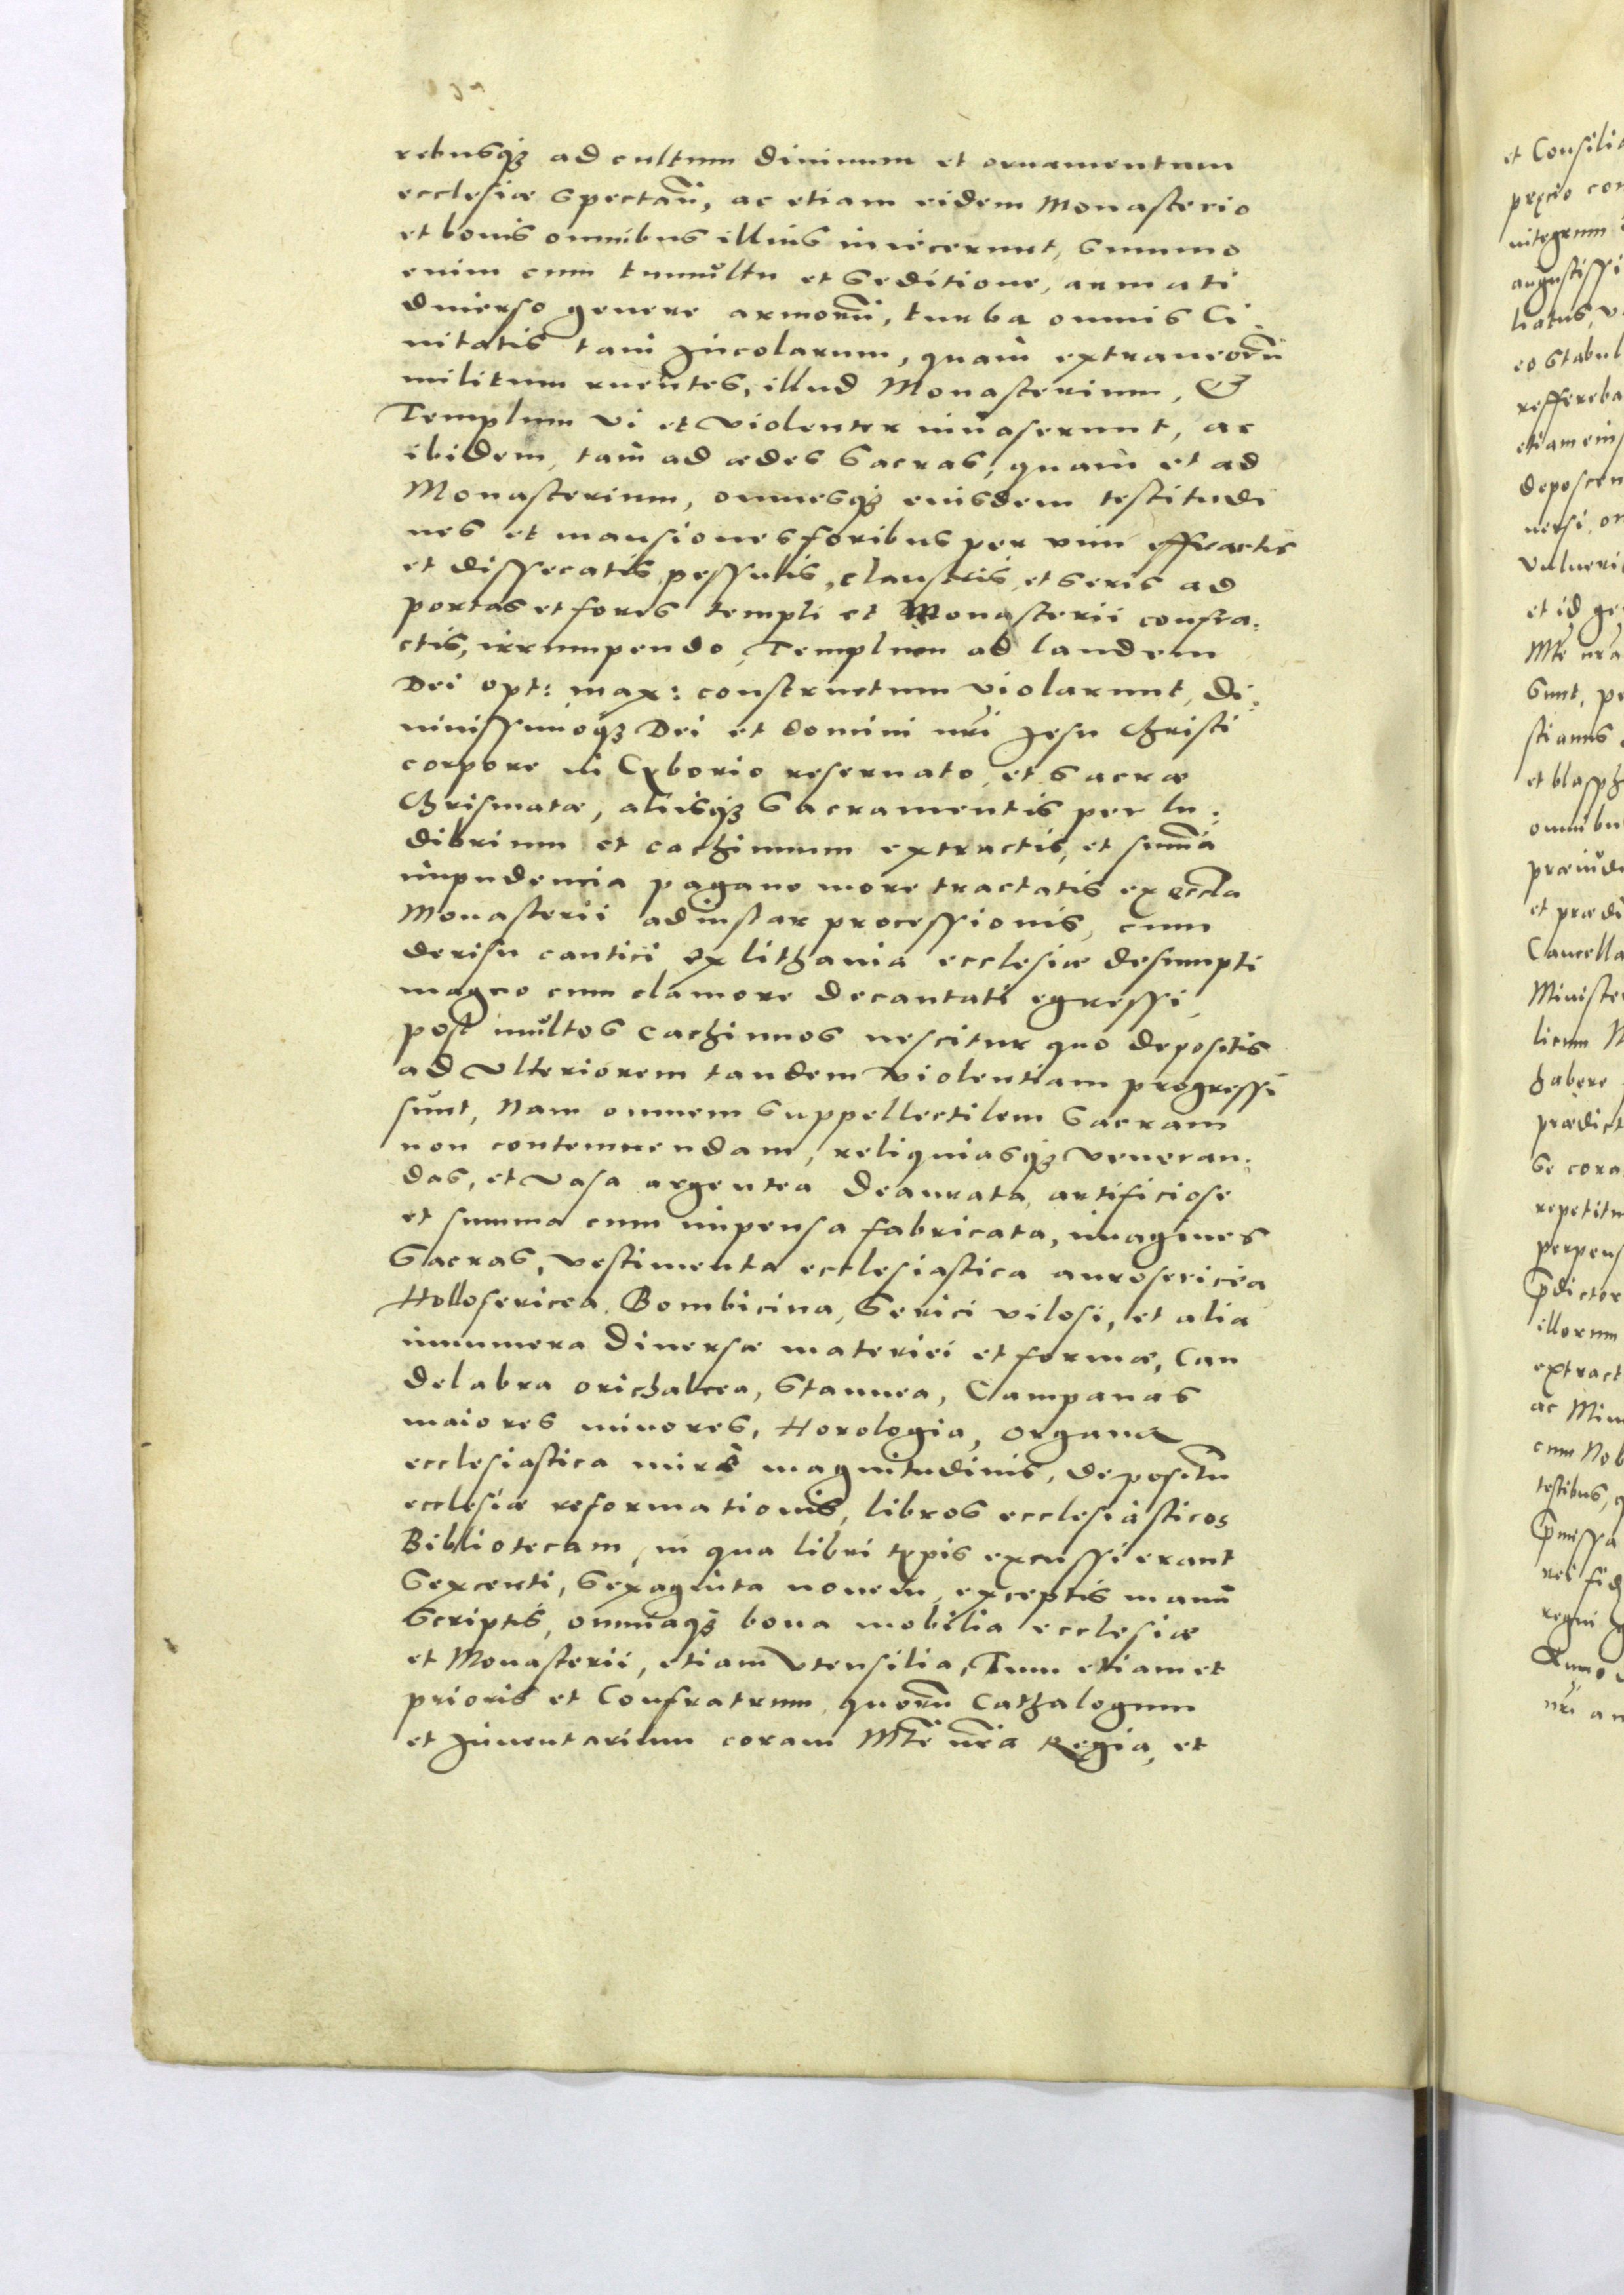 rebusq₃ ad cultum diuinum et ornamentum
ecclesiæ spectan̄, ac etiam eidem Monasterio
et bonis omnibus illius iniecerunt, summo
enim cum tumultu et seditione, armati
diuerso genere armorū, turba omnis Ci
uitatis tam Incolarum, quam extraneorū
militum ruentes, illud Monasterium, &
Templum vi et violenter inuaserunt, ac
ibidem, tam ad ædes sacras, quam et ad
Monasterium, omnesq₃ eiusdem testitudi
nes et mansiones foribus per vim effractis
et dissecatis pessulis, claustris et seris ad
portas et fores templi et Monasterii confra:
ctis, irrumpendo, Templum ad laudem
Dei opt: max: constructum violarunt, di:
uinissimoq₃ Dei et domini nr̄i Jesu Christi
corpore in Cyborio reseruato et sacræ
Chrismatæ, aliisq₃ sacramentis per lu:
dibrium et cachinnum extractis, et sum̄a
impudencia pagano more tractatis ex eccl̄a
Monasterii ad instar processionis, cum
derisu cantici ex lithania ecclesiæ desumpti
magno cum clamore decantati egressi,
post multos cachinnos nescitur quo depositis
ad vlteriorem tandem violentiam progressi
sunt, Nam omnem suppellectilem sacram
non contemnendam, reliquiasq₃ veneran:
das, et vasa argentea deaurata artificiose
et summa cum impensa fabricata, imagines
sacras, vestimenta ecclesiastica aurosericea
Hollosericea Bombicina, serici vilosi, et alia
innumera diuersæ materiei et formæ, Can
delabra orichalcea, stannea, Campanas
maiores minores, Horologia, organa
ecclesiastica miræ magnitudinis, depositū
ecclesiæ reformationis, libros ecclesiasticos
Bibliotecam, in qua libri typis excussi erant
sexcenti, sexaginta nouem, exceptis manu
scriptis, omniaq₃ bona mobilia ecclesiæ
et Monasterii, etiam vtensilia, Tum etiam et
prioris et Confratrum quorū Cathalogum
et Inuentarium coram Mte nr̄a Regia, et
et Consilia
precio con
integrum
augustissi
liatus, v
eo stabul
reffereba
etiam eius
deposcen
uersi, or
vulneri
et id ge
Mte nr̄a
sunt, pe
stianus
et blasph
omnibu
præiudi
et prædi
Cancella
Ministe
licum
habere
prædict
se cora
repetitu
perpens
p̄dictor
illorum
extract
ac Min
cum Nob
testibus, q
p̄missa
rei fid
regni
Anno
nr̄i an